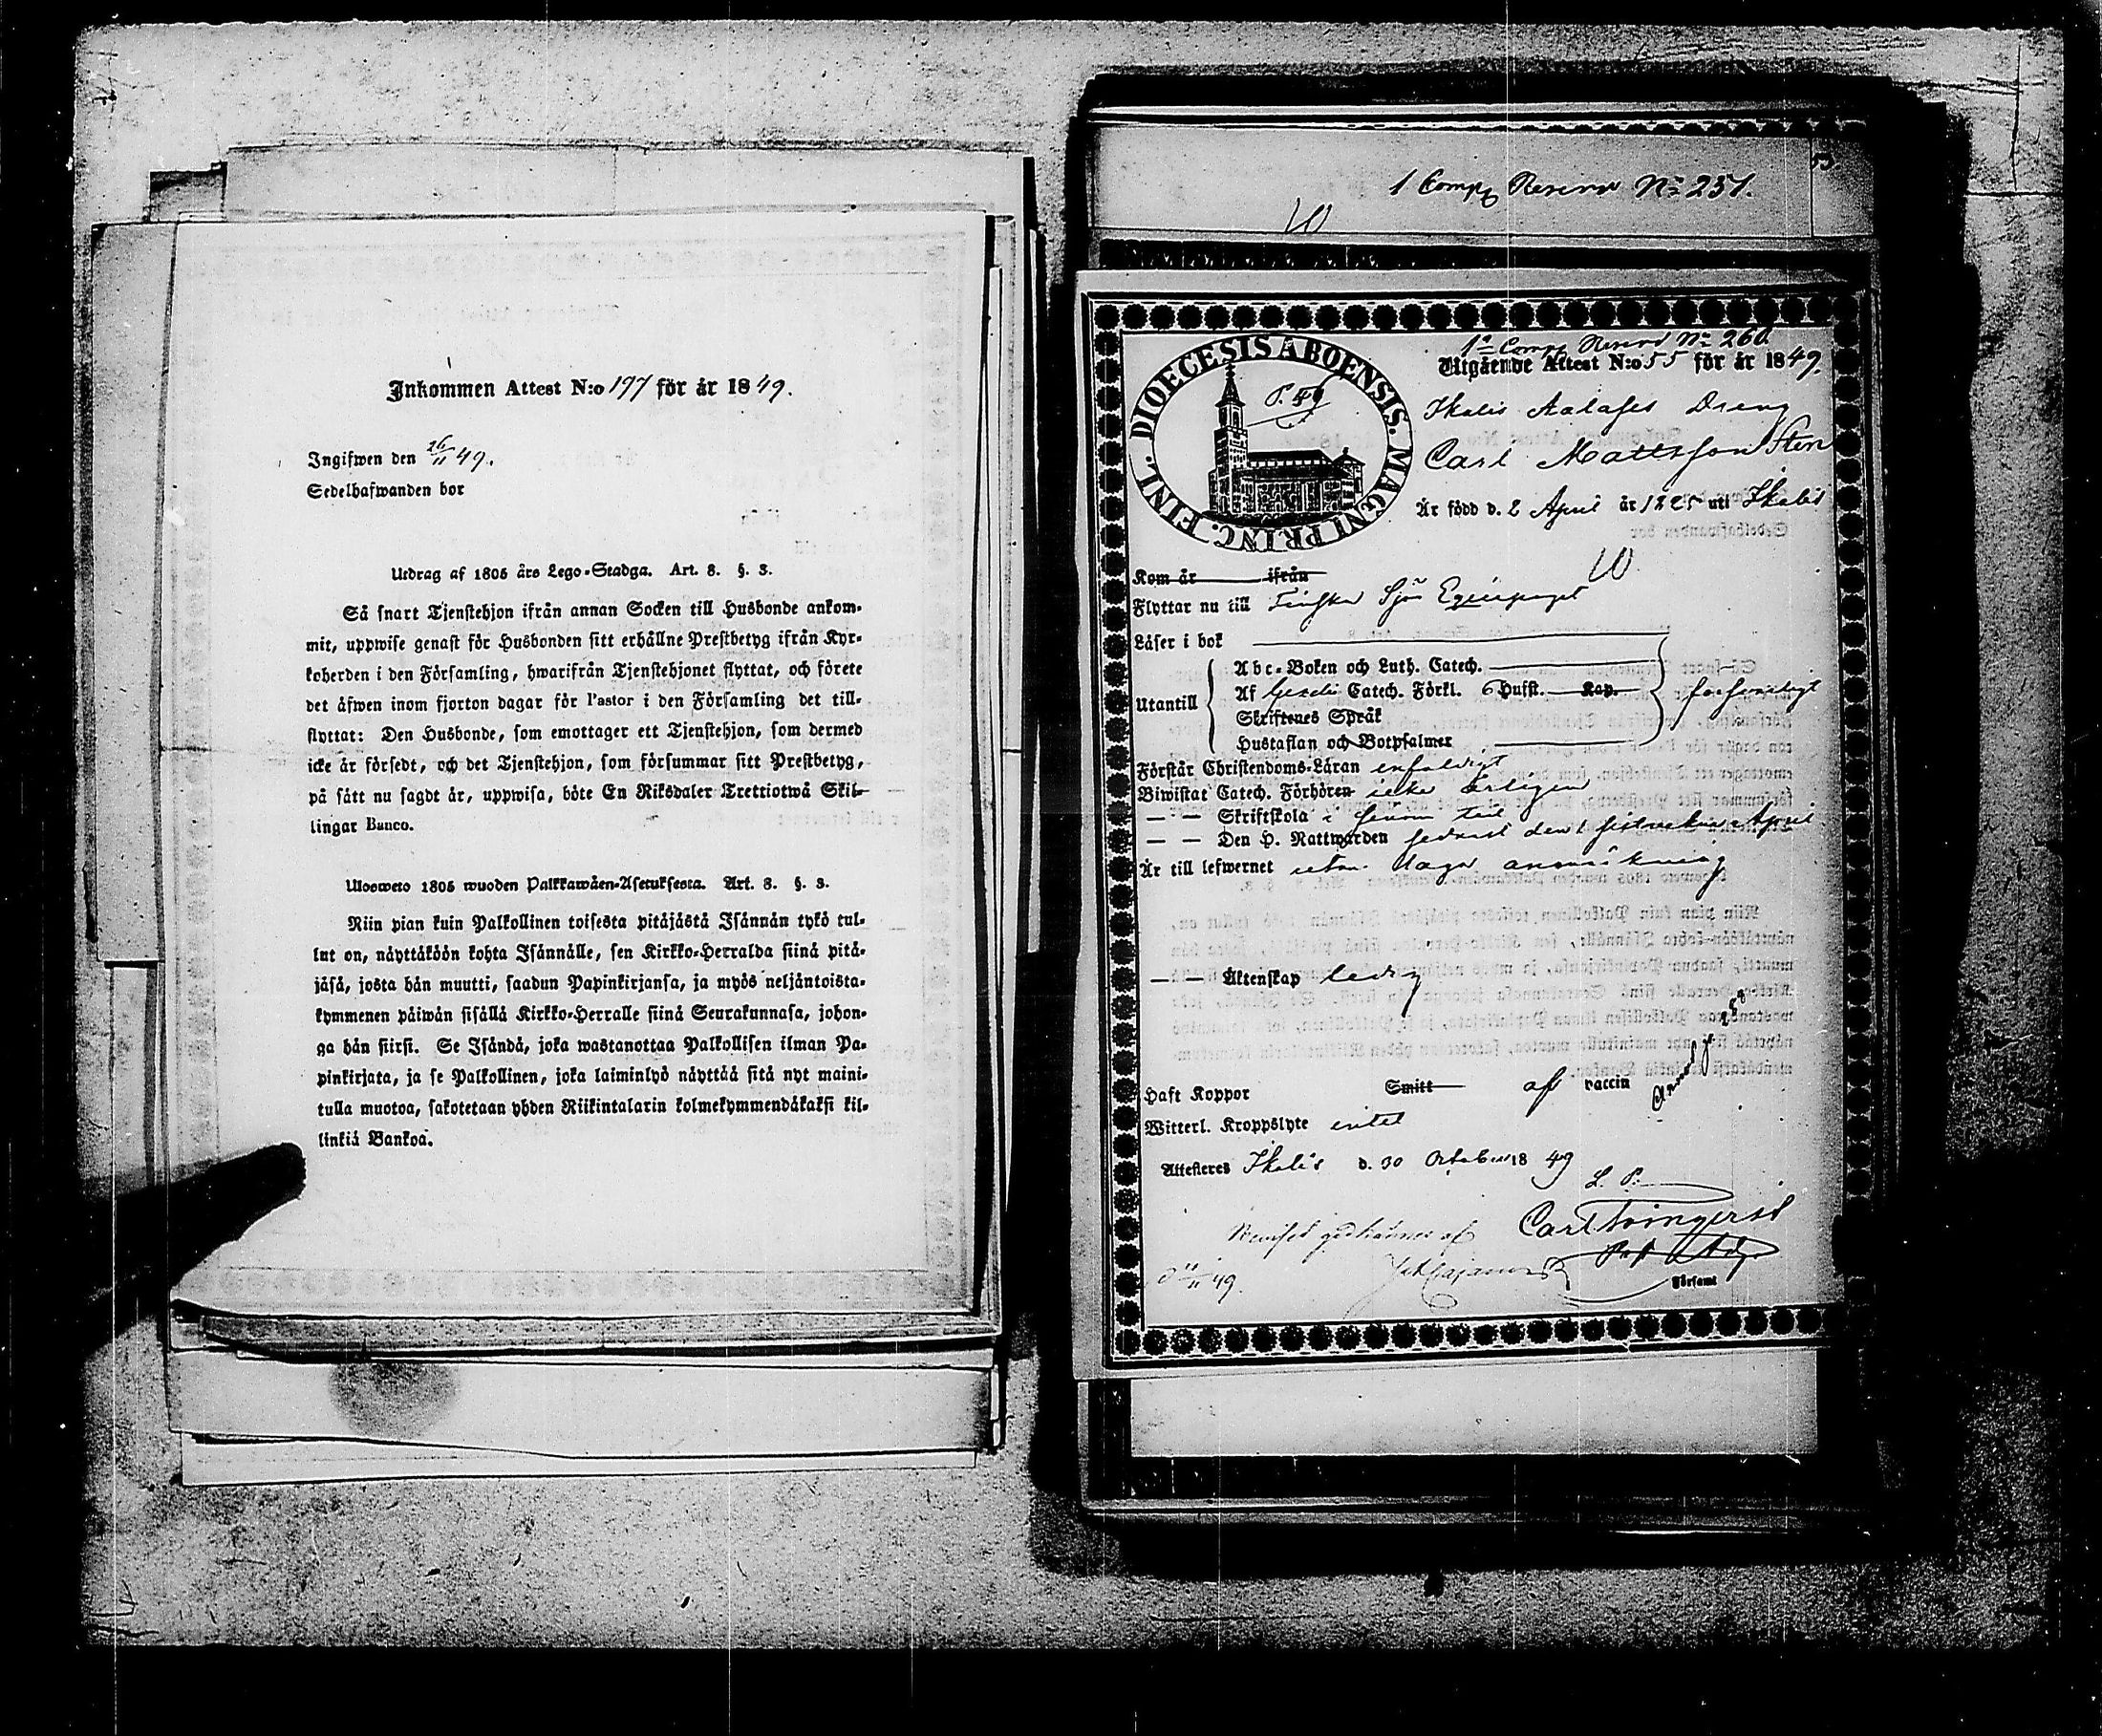 Inkommen Attest N:o 177 för år 1849.
Ingifwen den 26/11 49.
Sedelhafwanden bor
Utdrag af 1805 års Lego-Stadga. Art. 8. §. 3.
Så snart Tjenstehjon ifrån annan Socken till Husbonde ankom-
mit, uppwise genast för Husbonden sitt erhållne Prestbetyg ifrån Kyr-
koherden i den Församling, hwarifrån Tjenstehjonet flyttat, och förete
det äfwen inom fjorton dagar för Pastor i den Församling det till-
flyttat: Den Husbonde, som emottager ett Tjenstehjon, som dermed
icke är försedt, och det Tjenstehjon, som försummar sitt Prestbetyg,
på sätt nu sagdt är, uppwisa, böte En Riksdaler Trettiotwå Skil-
lingar Banco.
Ulosweto 1805 wuoden Palkkawäen-Asetuksesta. Art. 8. §. 3.
Niin pian kuin Palkollinen toisesta pitäjästä Isännän tykö tul-
lut on, näyttäköön kohta Isännälle, sen Kirkko-Herralda siinä pitä-
jäsä, josta hän muutti, saadun Papinkirjansa, ja myös neljäntoista-
kymmenen päiwän sisällä Kirkko-Herralle siinä Seurakunnasa, johon-
ga hän siirsi. Se Isändä, joka wastanottaa Palkollisen ilman Pa-
pinkirjata, ja se Palkollinen, joka laiminlyö näyttää sitä nyt maini-
tulla muotoa, sakotetaan yhden Riikintalarin kolmekymmendäkaksi kil-
linkiä Bankoa.
53
1 Comp Reserv No 251.
1a Comp Reserv No 260.
DIOECESIS ABOENSIS. MAGNI PRINC. FINL.
Utgående Attest N:o 55 för år 1849.
Ikalis Dreng
Carl Mattsson Sten
Är född d. 2 April år 1825 uti Ikalis
Kom år ifrån
Flyttar nu till Finska Sjö Equipaget
Läser i bok
Abc-Boken och Luth. Catech.
Utantill Af Catech. Förkl. 6 Hufst. Kap. försvarligt
Skriftenes Språk
Hustaflan och Botpsalmer
Förstår Christendoms-Läran enfaldigt
Biwistat Catech. Förhören icke årligen
— — Skriftskola i sinom tid
— — Den H. Nattwarden sednast den 1 sistvekne April
Är till lefwernet utan laga anmärkning
— — Äktenskap ledig
Haft Koppor Smitt af vaccin
Witterl. Kroppslyte intet
Attesteres Ikalis d. 30 October 18 49
L. P.
Carl
Församl
49.